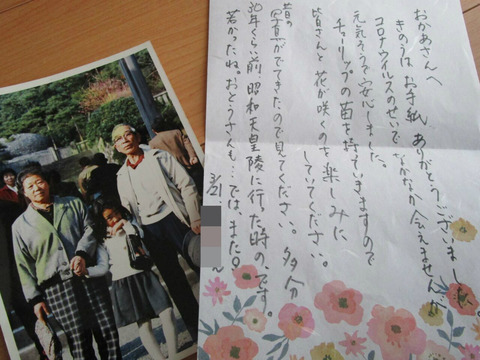 おかあさんへ
きのうは お手紙 ありがとうございました
コロナウイルスのせいで なかなか会えませんが
元気そうで安心しました。
チューリップの苗を持っていきますので
皆さんと 花が咲くのを楽しみに
していてください。
昔の写真がでてきたので見てください。多分
30年くらい前、昭和天皇陵に行った時の、です。
若かったね。おとうさんも…では、また。
3/21
ん